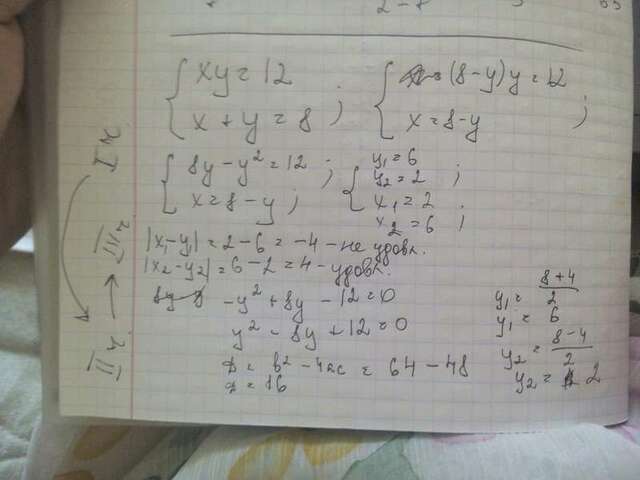 { xy = 12
x + y = 8 ;
{ (8-y)y = 12
x = 8-y ;
{ 8y - y² = 12 ;
x = 8 - y ;
{ y₁ = 6
y₂ = 2 ;
x₁ = 2
x₂ = 6 ;
|x₁-y₁| = 2 - 6 = -4 - не удовл.
|x₂-y₂| = 6 - 2 = 4 - удовл.
-y² + 8y - 12 = 0
y² - 8y + 12 = 0
D = b² - 4ac = 64 - 48
D = 16
y₁ = (8+4)/2
y₁ = 6
y₂ = (8-4)/2
y₂ = 2